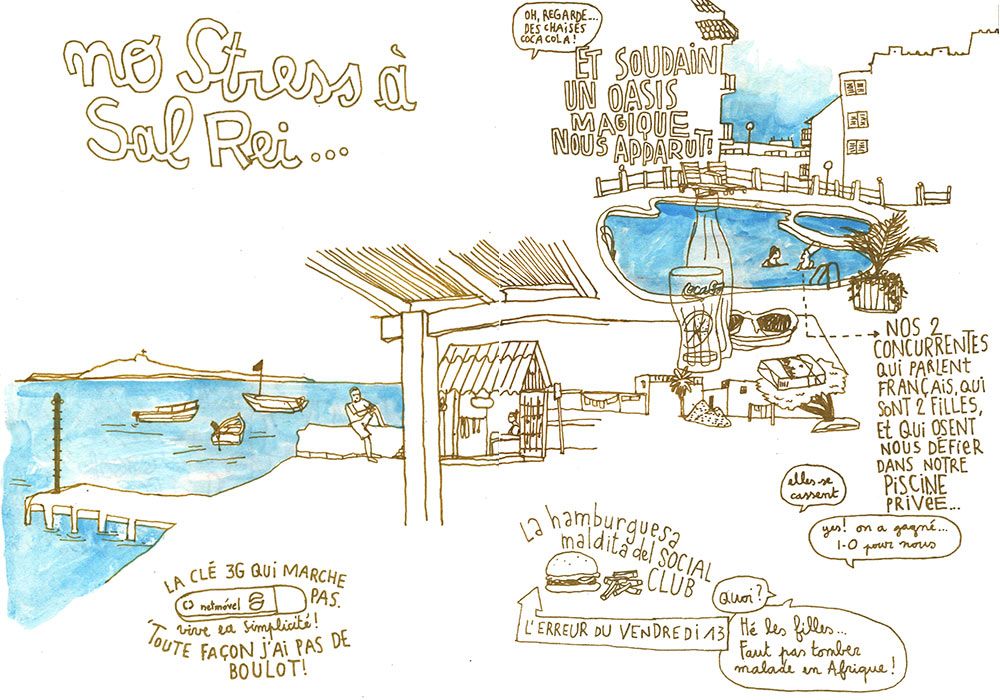 no Stress à
Sal Rei...
OH, REGARDE...
DES CHAISES
COCA COLA!
ET SOUDAIN
UN OASIS
MAGIQUE
NOUS APPARUT!
Coca Cola
NOS 2
CONCURRENTES
QUI PARLENT
FRANÇAIS, QUI
SONT 2 FILLES,
ET QUI OSENT
NOUS DÉFIER
DANS NOTRE
PISCINE
PRIVÉE...
elles se
cassent
yes! on a gagné...
1-0 pour nous
LA CLÉ 3G QUI MARCHE
PAS.
netmóvel
vive la simplicité!
'TOUTE FAÇON J'AI PAS DE
BOULOT!
La hamburguesa
maldita del SOCIAL
CLUB
L'ERREUR DU VENDREDI 13
Quoi?
Hé les filles...
Faut pas tomber
malade en Afrique!